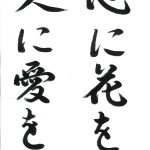 心に花を
人に愛を